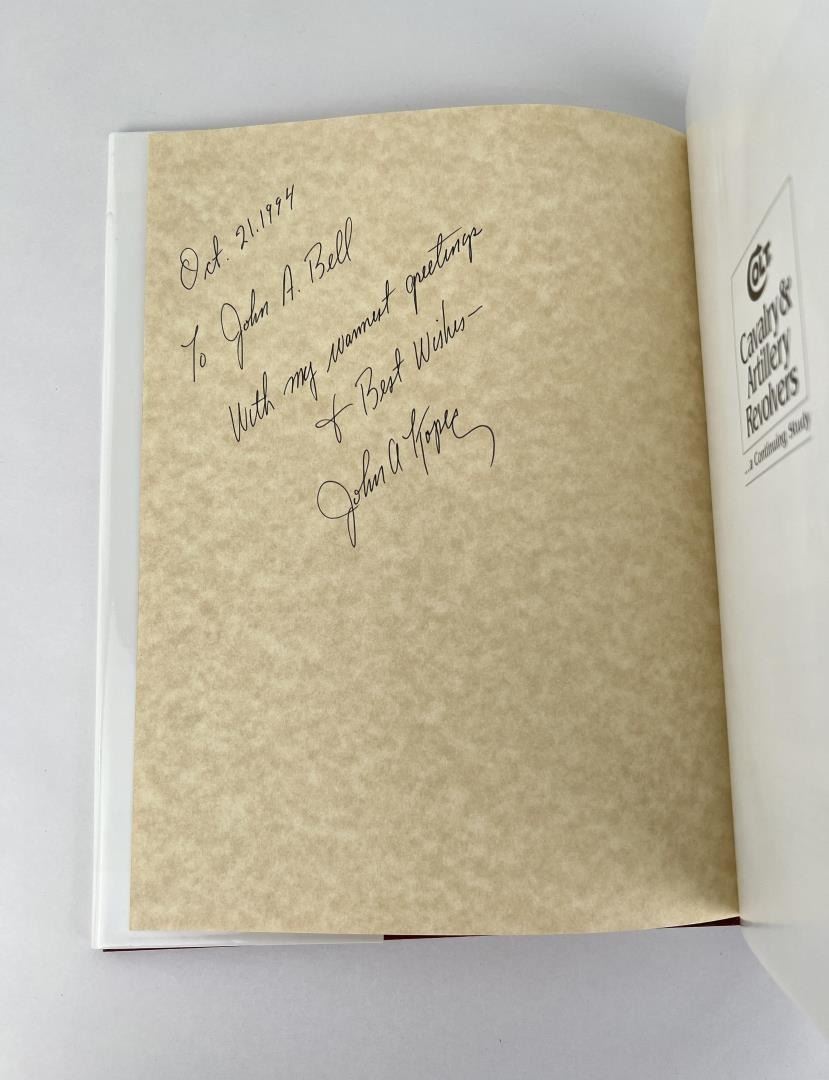 Oct. 21.1994
To John A. Bell
With my warmest greetings
& Best Wishes—
John A Kopec
COLT
Cavalry &
Artillery
Revolvers
...a Continuing Study